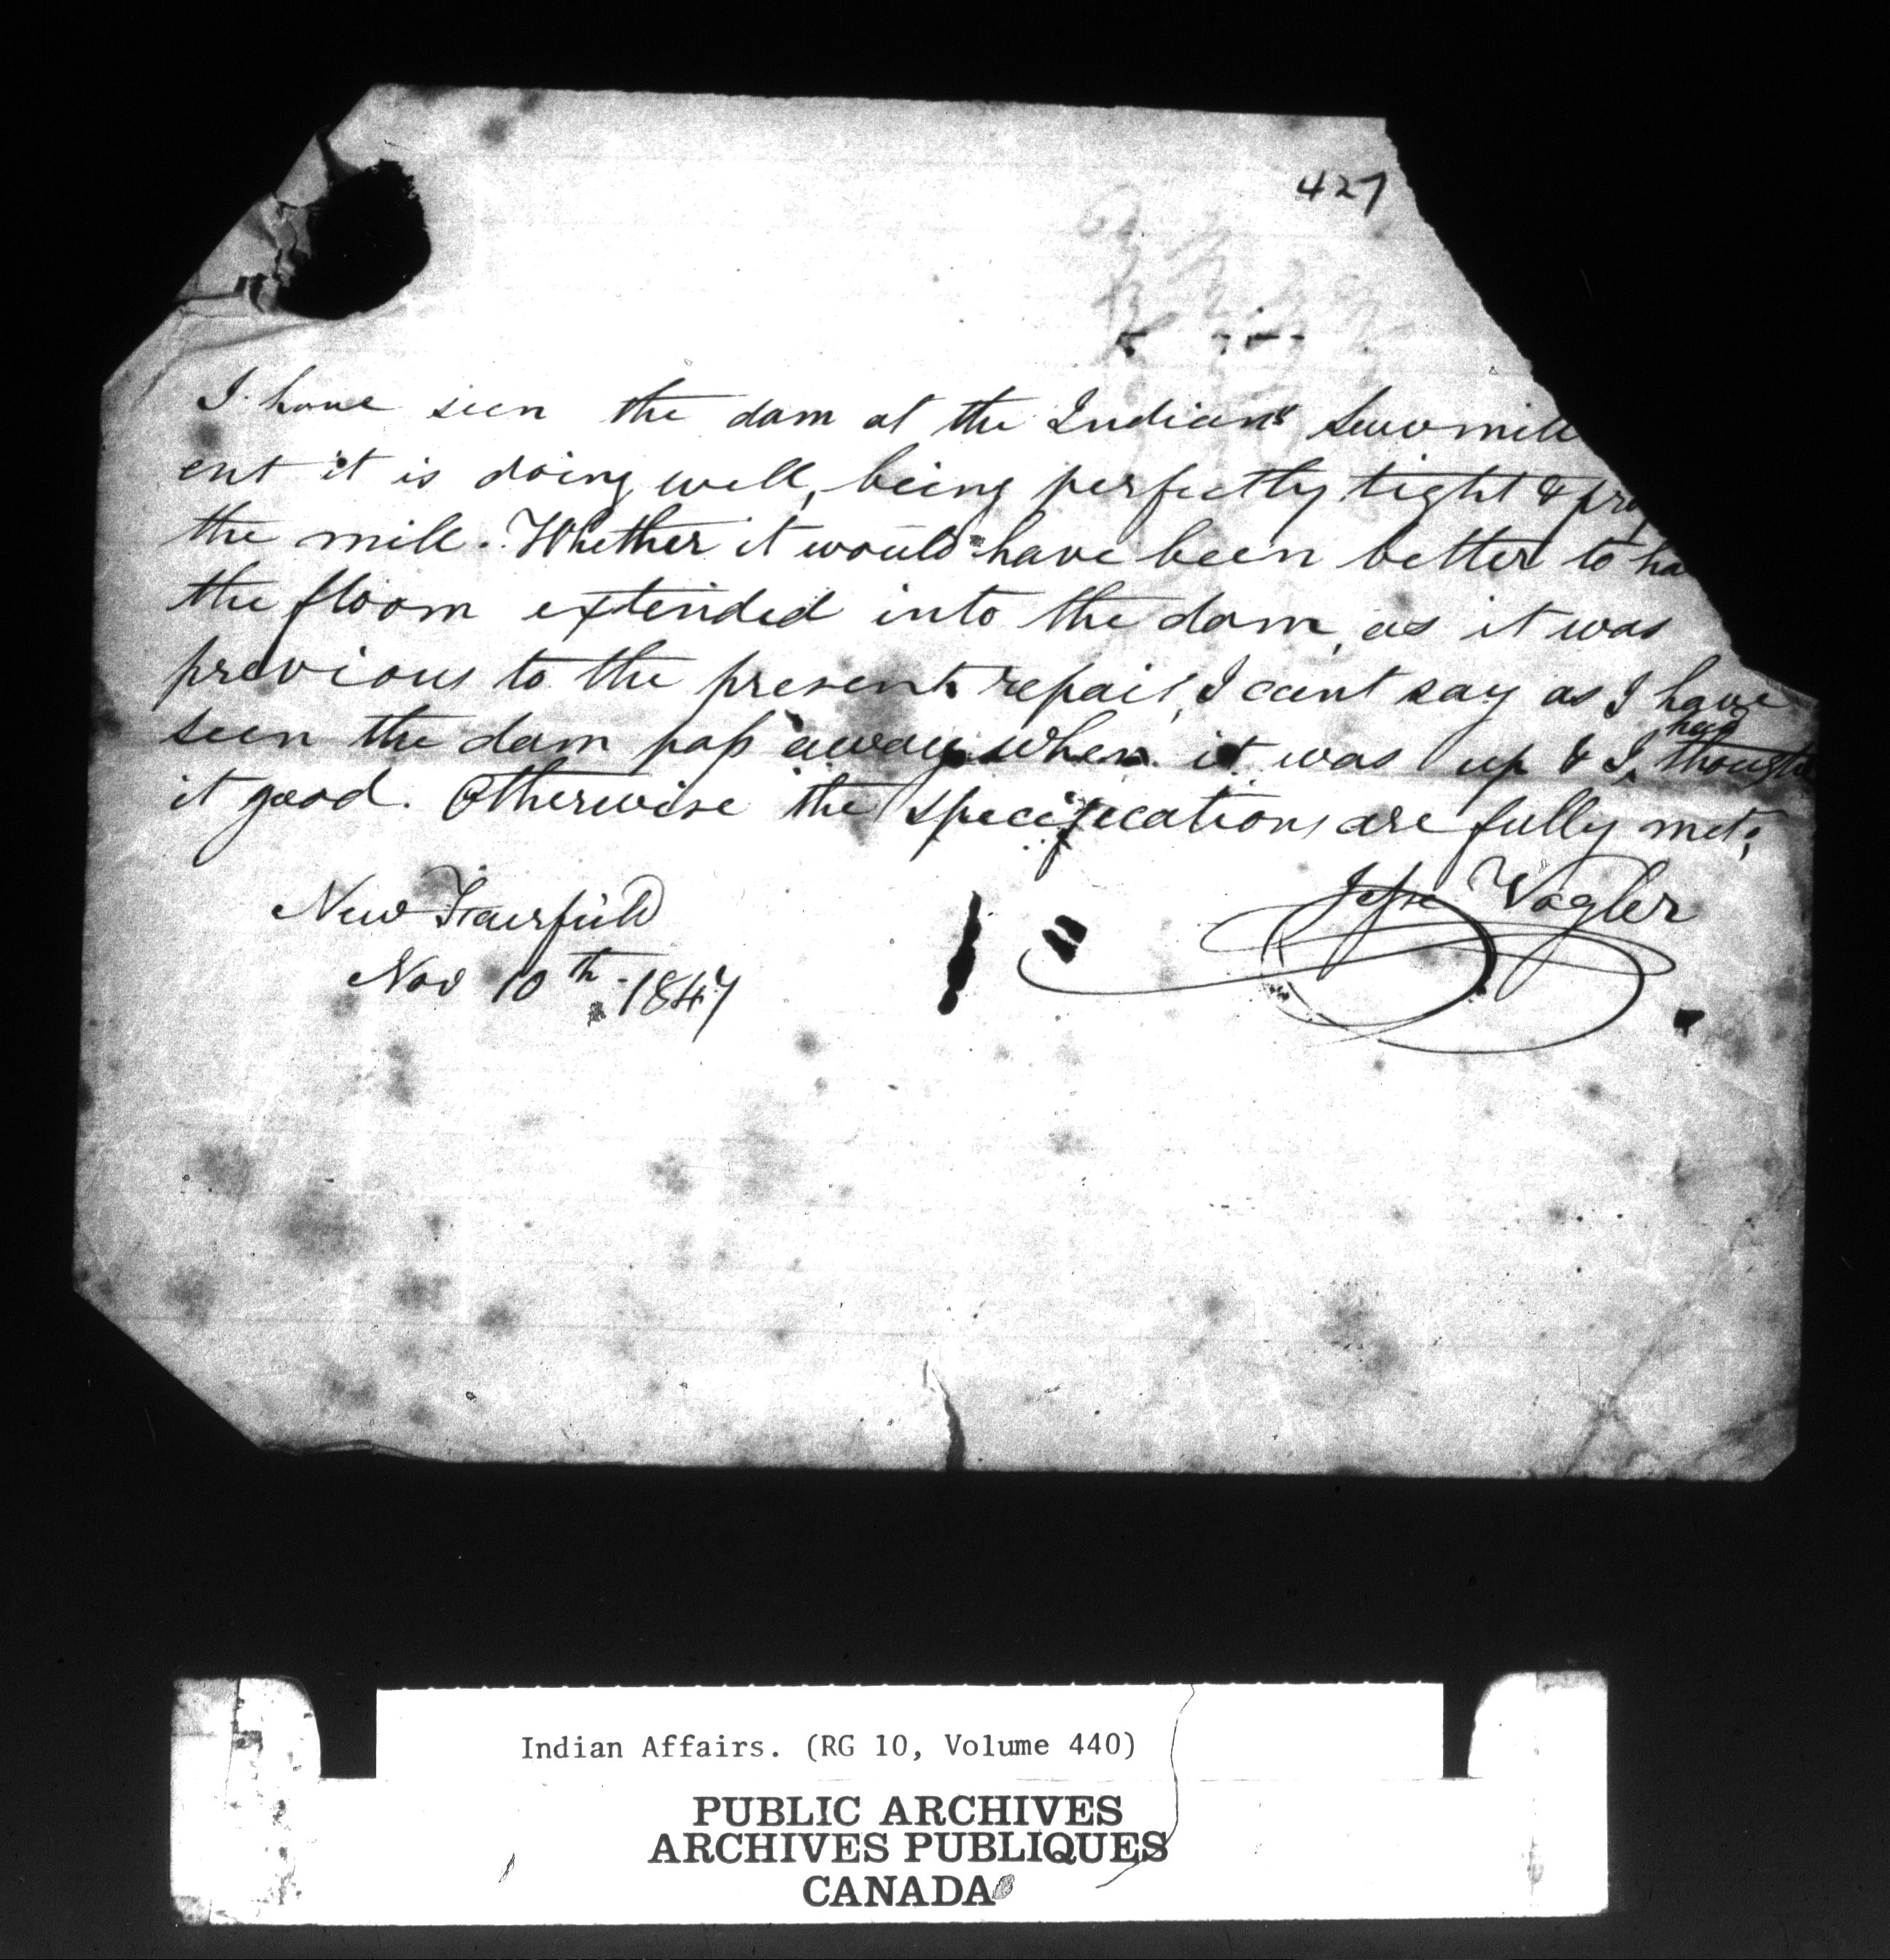 427
I have seen the dam at the Indians' Sawmill
ent it is doing well, being perfectly tight & pro
the mill. Whether it would have been better to ha
the floom extended into the dam, as it was
previous to the present repair, I cant say as I have
seen the dam pass away when it was up & I had thought
it good. Otherwise the specifications are fully met;
Jesse Vogler
New Fairfield
Nov 10th 1847
Indian Affairs. (RG 10, Volume 440)
PUBLIC ARCHIVES
ARCHIVES PUBLIQUES
CANADA